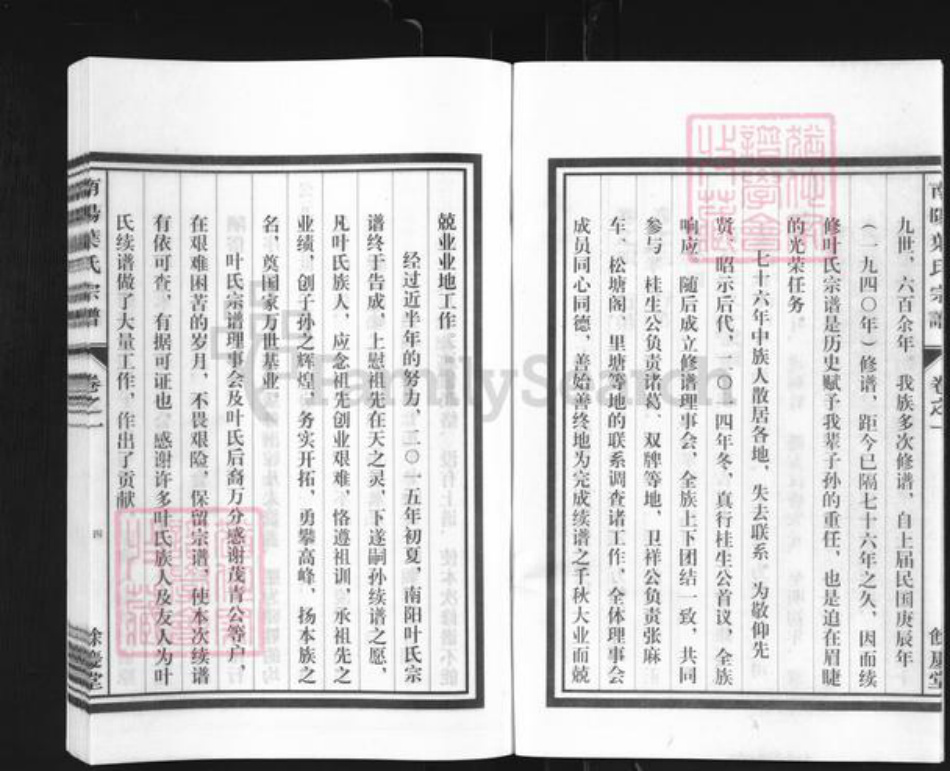 南陽葉氏宗譜
卷之一
餘慶堂
九世、六百余年，我族多次修谱，自上届民国庚辰年
（一九四〇年）修谱，距今已隔七十六年之久，因而续
修叶氏宗谱是历史赋予我辈子孙的重任，也是迫在眉睫
的光荣任务
七十六年中族人散居各地，失去联系 为敬仰先
贤、昭示后代，二〇一四年冬，真行桂生公首议，全族
响应 随后成立修谱理事会，全族上下团结一致，共同
参与 桂生公负责诸葛、双牌等地，卫祥公负责张麻
车、松塘阁、里塘等地的联系调查诸工作，全体理事会
成员同心同德，善始善终地为完成续谱之千秋大业而兢
兢业业地工作
经过近半年的努力，二〇一五年初夏，南阳叶氏宗
谱终于告成，上慰祖先在天之灵，下遂嗣孙续谱之愿，
凡叶氏族人，应念祖先创业艰难，恪遵祖训，承祖先之
业绩，创子孙之辉煌，务实开拓，勇攀高峰，扬本族之
名，奠国家万世基业
叶氏宗谱理事会及叶氏后裔万分感谢茂青公等户，
在艰难困苦的岁月，不畏艰险，保留宗谱，使本次续谱
有依可查，有据可证也 感谢许多叶氏族人及友人为叶
氏续谱做了大量工作，作出了贡献
南陽葉氏宗譜
卷之一
四
餘慶堂
FamilySearch